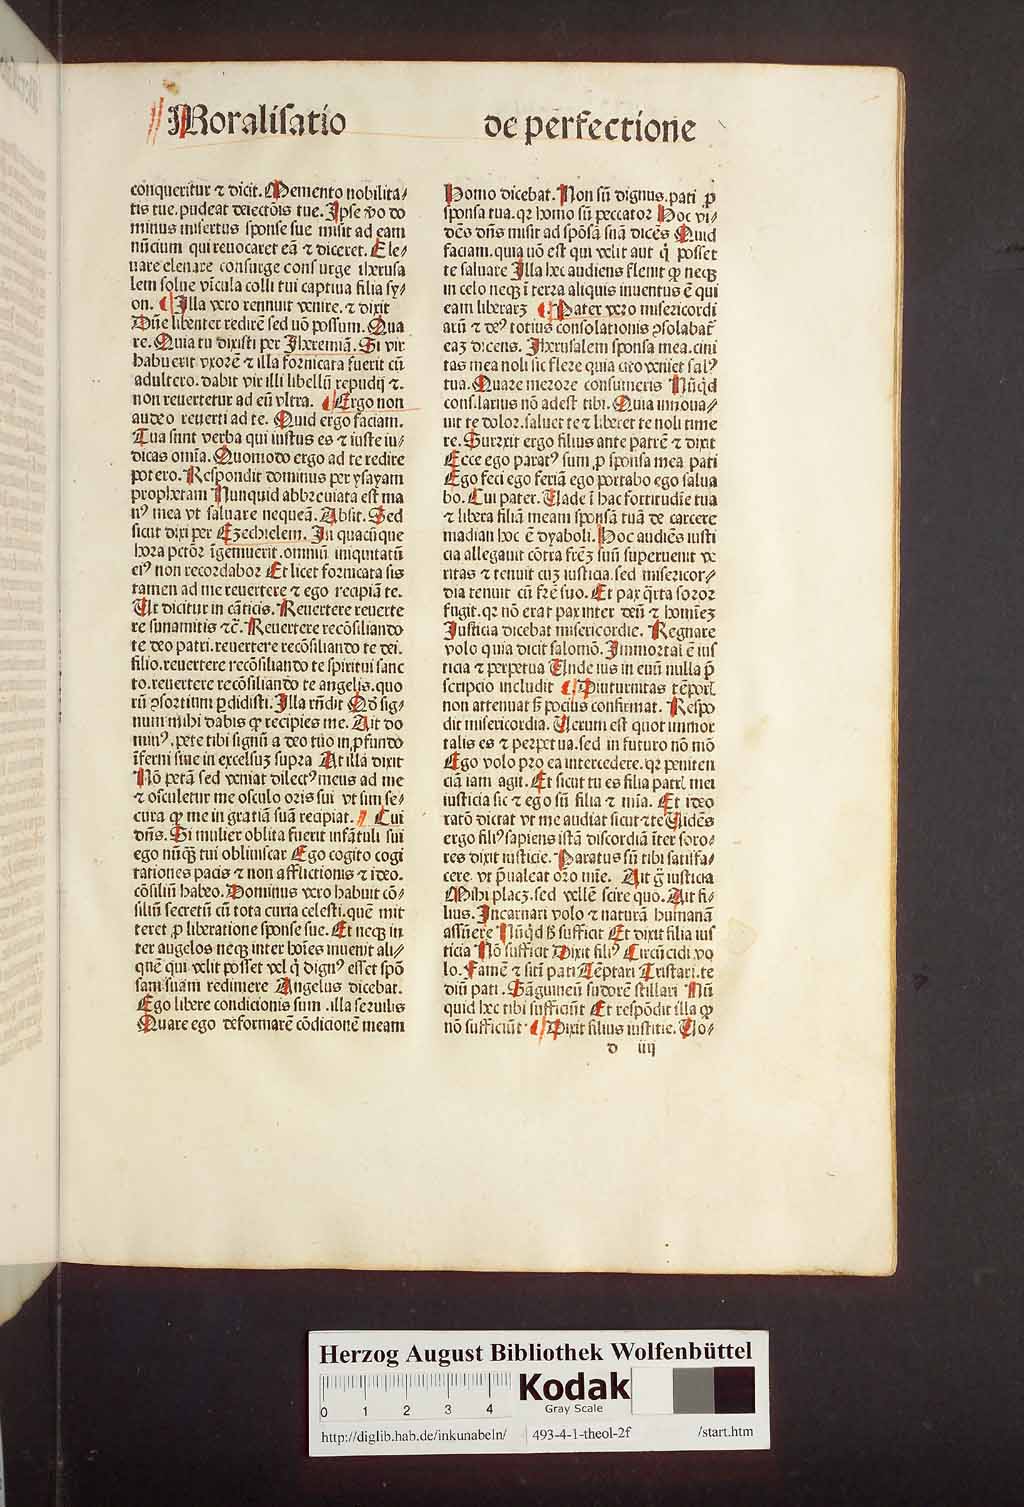 Moralisatio de perfectione
conqueritur ⁊ dicit. Memento nobilita⸗
tis tue. pudeat deiectõis tue. Ipse ṽo do
minus misertus sponse sue misit ad eam
nũcium qui reuocaret eã ⁊ diceret. Ele⸗
uare eleuare consurge consurge iherusa
lem solue vĩcula colli tui captiua filia sy⸗
on. Illa vero rennuit venire. ⁊ dixit
Dñe libenter redirẽ sed nõ possum. Qua
re. Quia tu dixisti per Jheremiã. Si vir
habuerit vxorẽ ⁊ illa fornicata fuerit cũ
adultero. dabit vir illi libellũ repudij ⁊.
non reuertetur ad eũ vltra. Ergo non
audeo reuerti ad te. Quid ergo faciam.
Tua sunt verba qui iustus es ⁊ iuste iu⸗
dicas om̃ia. Quomodo ergo ad te redire
potero. Respondit dominus per ysayam
prophetam Nunquid abbreuiata est ma
nꝰ mea vt saluare nequeã. Absit. Sed
sicut dixi per Ezechielem. In quacũque
hora pctõr ĩgemuerit. omniũ iniquitatũ
eiꝰ non recordabor Et licet fornicata sis
tamen ad me reuertere ⁊ ego recipiã te.
Ut dicitur in cãticis. Reuertere reuerte
re sunamitis ⁊c̃. Reuertere recõsiliando
te deo patri. reuertere recõsiliando te dei.
filio. reuertere recõsiliando te spiritui sanc
to. reuertere recõsiliando te angelis. quo
rũ ꝯsortium ꝑdidisti. Illa rñdit Qd̃ sig⸗
num mihi dabis ꝙ recipies me. Ait do
minꝰ. pete tibi signũ a deo tuo in ꝓfundo
ĩferni siue in excelsuȝ supra At illa dixit
Nõ petã sed veniat dilectꝰ meus ad me
⁊ osculetur me osculo oris sui vt sim se⸗
cura ꝙ me in gratiã suã recipiat. Cui
dñs. Si mulier oblita fuerit infãtuli sui
ego nũqȝ tui obliuiscar Ego cogito cogi
tationes pacis ⁊ non afflictionis ⁊ ideo.
cõsiliũ habeo. Dominus vero habuit cõ⸗
siliũ secretũ cũ tota curia celesti. quẽ mit
teret ꝓ liberatione sponse sue. Et neqȝ in
ter angelos neqȝ inter hoĩes inuenit ali⸗
quẽ qui velit posset vel ꝙ dignꝰ esset spõ
sam suam redimere Angelus dicebat.
Ego libere condicionis sum. illa seruilis
Quare ego deformarẽ cõdicionẽ meam
Homo dicebat. Non sũ dignus. pati ꝓ
sponsa tua. qꝛ homo sũ peccator Hoc vi⸗
dẽs dñs misit ad spõsã suã dicẽs Quid
faciam. quia nõ est qui velit aut ꝙ posset
te saluare Illa hec audiens fleuit ꝙ neqȝ
in celo neqȝ ĩ terra aliquis inuentus ẽ qui
eam liberarȝ Pater vero misericordi
arũ ⁊ deꝰ totius consolationis ꝯsolabat̃
eaȝ dicens. Jherusalem sponsa mea. ciui
tas mea noli sic flere quia cito veniet salꝰ
tua. Quare merore consumeris Nũqd
consiliarius nõ adest tibi. Quia innoua⸗
uit te dolor. saluet te ⁊ liberet te noli time
re. Surrexit ergo filius ante patrẽ ⁊ dixit
Ecce ego paratꝰ sum ꝓ sponsa mea pati
Ego feci ego feriã ego portabo ego salua
bo. Cui pater. Uade ĩ hac fortitudĩe tua
⁊ libera filiã meam sponsã tuã de carcere
madian hoc ẽ dyaboli. Hoc audiẽs iusti
cia allegauit cõtra frẽȝ suũ superuenit ve
ritas ⁊ tenuit cuȝ iusticia. sed misericor⸗
dia tenuit cũ frẽ suo. Et pax q̃rta soror
fugit. qꝛ nõ erat pax inter deũ ⁊ homĩeȝ
Justicia dicebat misericordie. Regnare
volo quia dicit salomõ. Immortal̃ ẽ ius
ticia ⁊ perpetua Unde ius in euũ nulla p̃
scripcio includit Diuturnitas tẽporl̃
non attenuat sꝫ pocius confirmat. Respõ
dit misericordia. Uerum est quot immor
talis es ⁊ perpetua. sed in futuro nõ mõ
Ego volo pro ea intercedere. qꝛ peniten
ciã iam agit. Et sicut tu es filia patrl̃ mei
iusticia sic ⁊ ego sũ filia ⁊ mĩa. Et ideo
ratõ dictat vt me audiat sicut ⁊ te Uidẽs
ergo filiꝰ sapiens istã discordiã ĩter soro⸗
res dixit iusticie. Paratus sũ tibi satisfa⸗
cere vt p̃ualeat or̃o mĩe. Ait g̃ iusticia
Mihi placȝ. sed vellẽ scire quo. Ait fi⸗
lius. Incarnari volo ⁊ naturã humanã
assũere Nũqd hꝫ sufficit Et dixit filia ius
ticia Nõ sufficit Dixit filiꝰ Circũcidi vo
lo. Famẽ ⁊ sitĩ pati Tẽptari Tristari. te
diũ pati. Sãguineũ sudorẽ stillari Nũ
quid hec tibi sufficiũt Et respõdit illa ꝙ
nõ sufficiũt Dixit filius iustitie. Uo⸗
d iiij
Herzog August Bibliothek Wolfenbüttel
0 1 2 3 4
Kodak
Gray Scale
http://diglib.hab.de/inkunabeln/ 493-4-1-theol-2f /start.htm